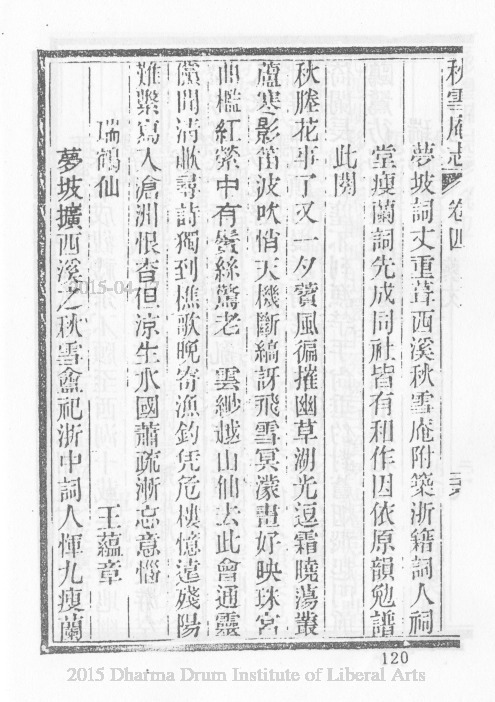 秋雪庵志 卷四 二六
夢坡詞丈重葺西溪秋雪庵附築浙籍詞人祠
堂瘦蘭詞先成同社皆有和作因依原韻勉譜
此闋
秋塍花事了又一夕簀風徧摧幽草湖光逗霜曉蕩叢
蘆寒影笛波吹悄天機斷縞訝飛雪冥濛畫好映珠宮
曲檻紅縈中有鬢絲驚老 雲緲越山仙去此會通靈
儻聞清嘯尋詩獨到樵歌晚寄漁釣凭危樓憶遠殘陽
難繫寫入滄洲恨杳但涼生水國蕭疏漸忘意惱
瑞鶴仙 王蘊章
夢坡擴西溪之秋雪盦祀浙中詞人惲九瘦蘭
120
2015-04-
2015 Dharma Drum Institute of Liberal Arts